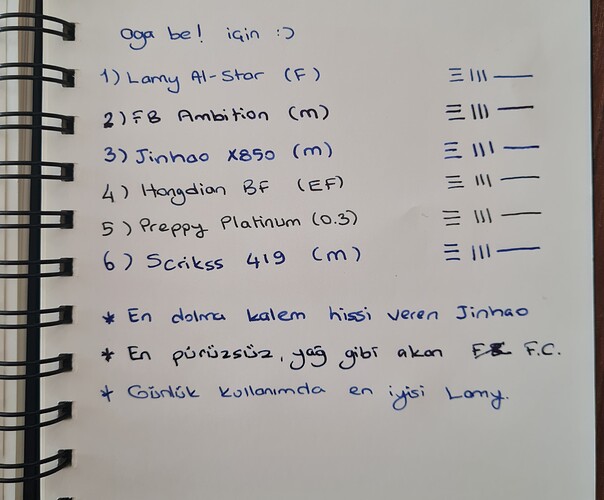 aga be! için :)
1) Lamy Al-Star (F)
2) FB Ambition (m)
3) Jinhao X850 (m)
4) Hongdian BF (EF)
5) Preppy Platinum (0.3)
6) Scrikss 419 (m)
* En dolma kalem hissi veren Jinhao
* En pürüzsüz, yağ gibi akan F.C.
* Günlük kullanımda en iyisi Lamy.